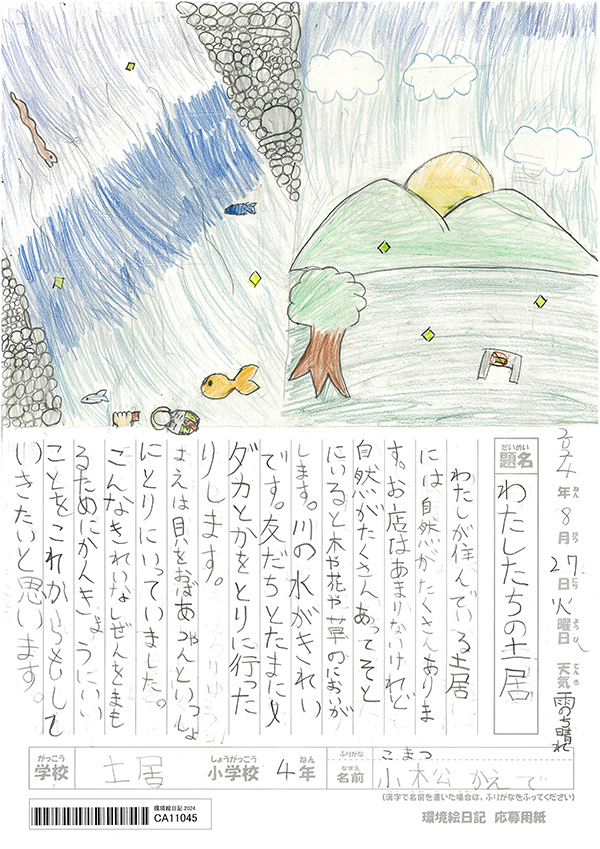 2024年8月27日火曜日 天気 雨のち晴れ
ねん がつ にち ようび てんき
だいめい
題名
わたしたちの土居
わたしが住んでいる土居
には自然がたくさんありま
す。お店はあまりないけれど
自然がたくさんあってそと
にいると木や花や草のにおいが
します。川の水がきれい
です。友だちとたまにメ
ダカとかをとりに行った
りします。
まえは貝をおばあちゃんといっしょ
にとりにいっていました。
こんなきれいなしぜんをまも
るためにかんきょうにいい
ことをこれからもして
いきたいと思います。
がっこう しょうがっこう ねん
学校 土居 小学校 4年
ふりがな こまつ
なまえ
名前 小松 かえで
(漢字で名前を書いた場合は、ふりがなをふってください)
環境絵日記 2024
CA11045
環境絵日記 応募用紙